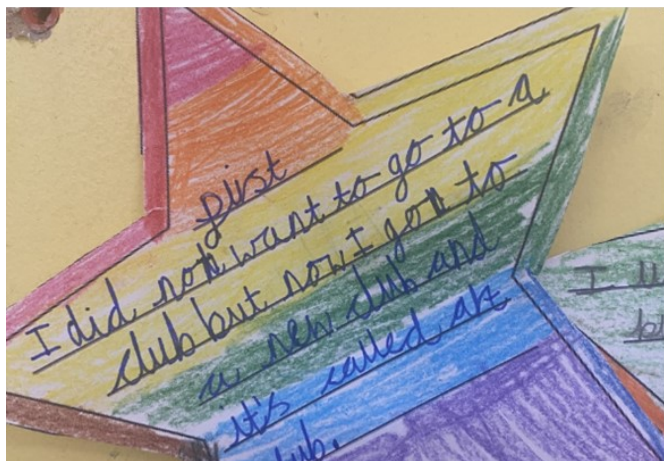 first
I did not want to go to a
club but now I go to
a new club and
it's called art
club.
I